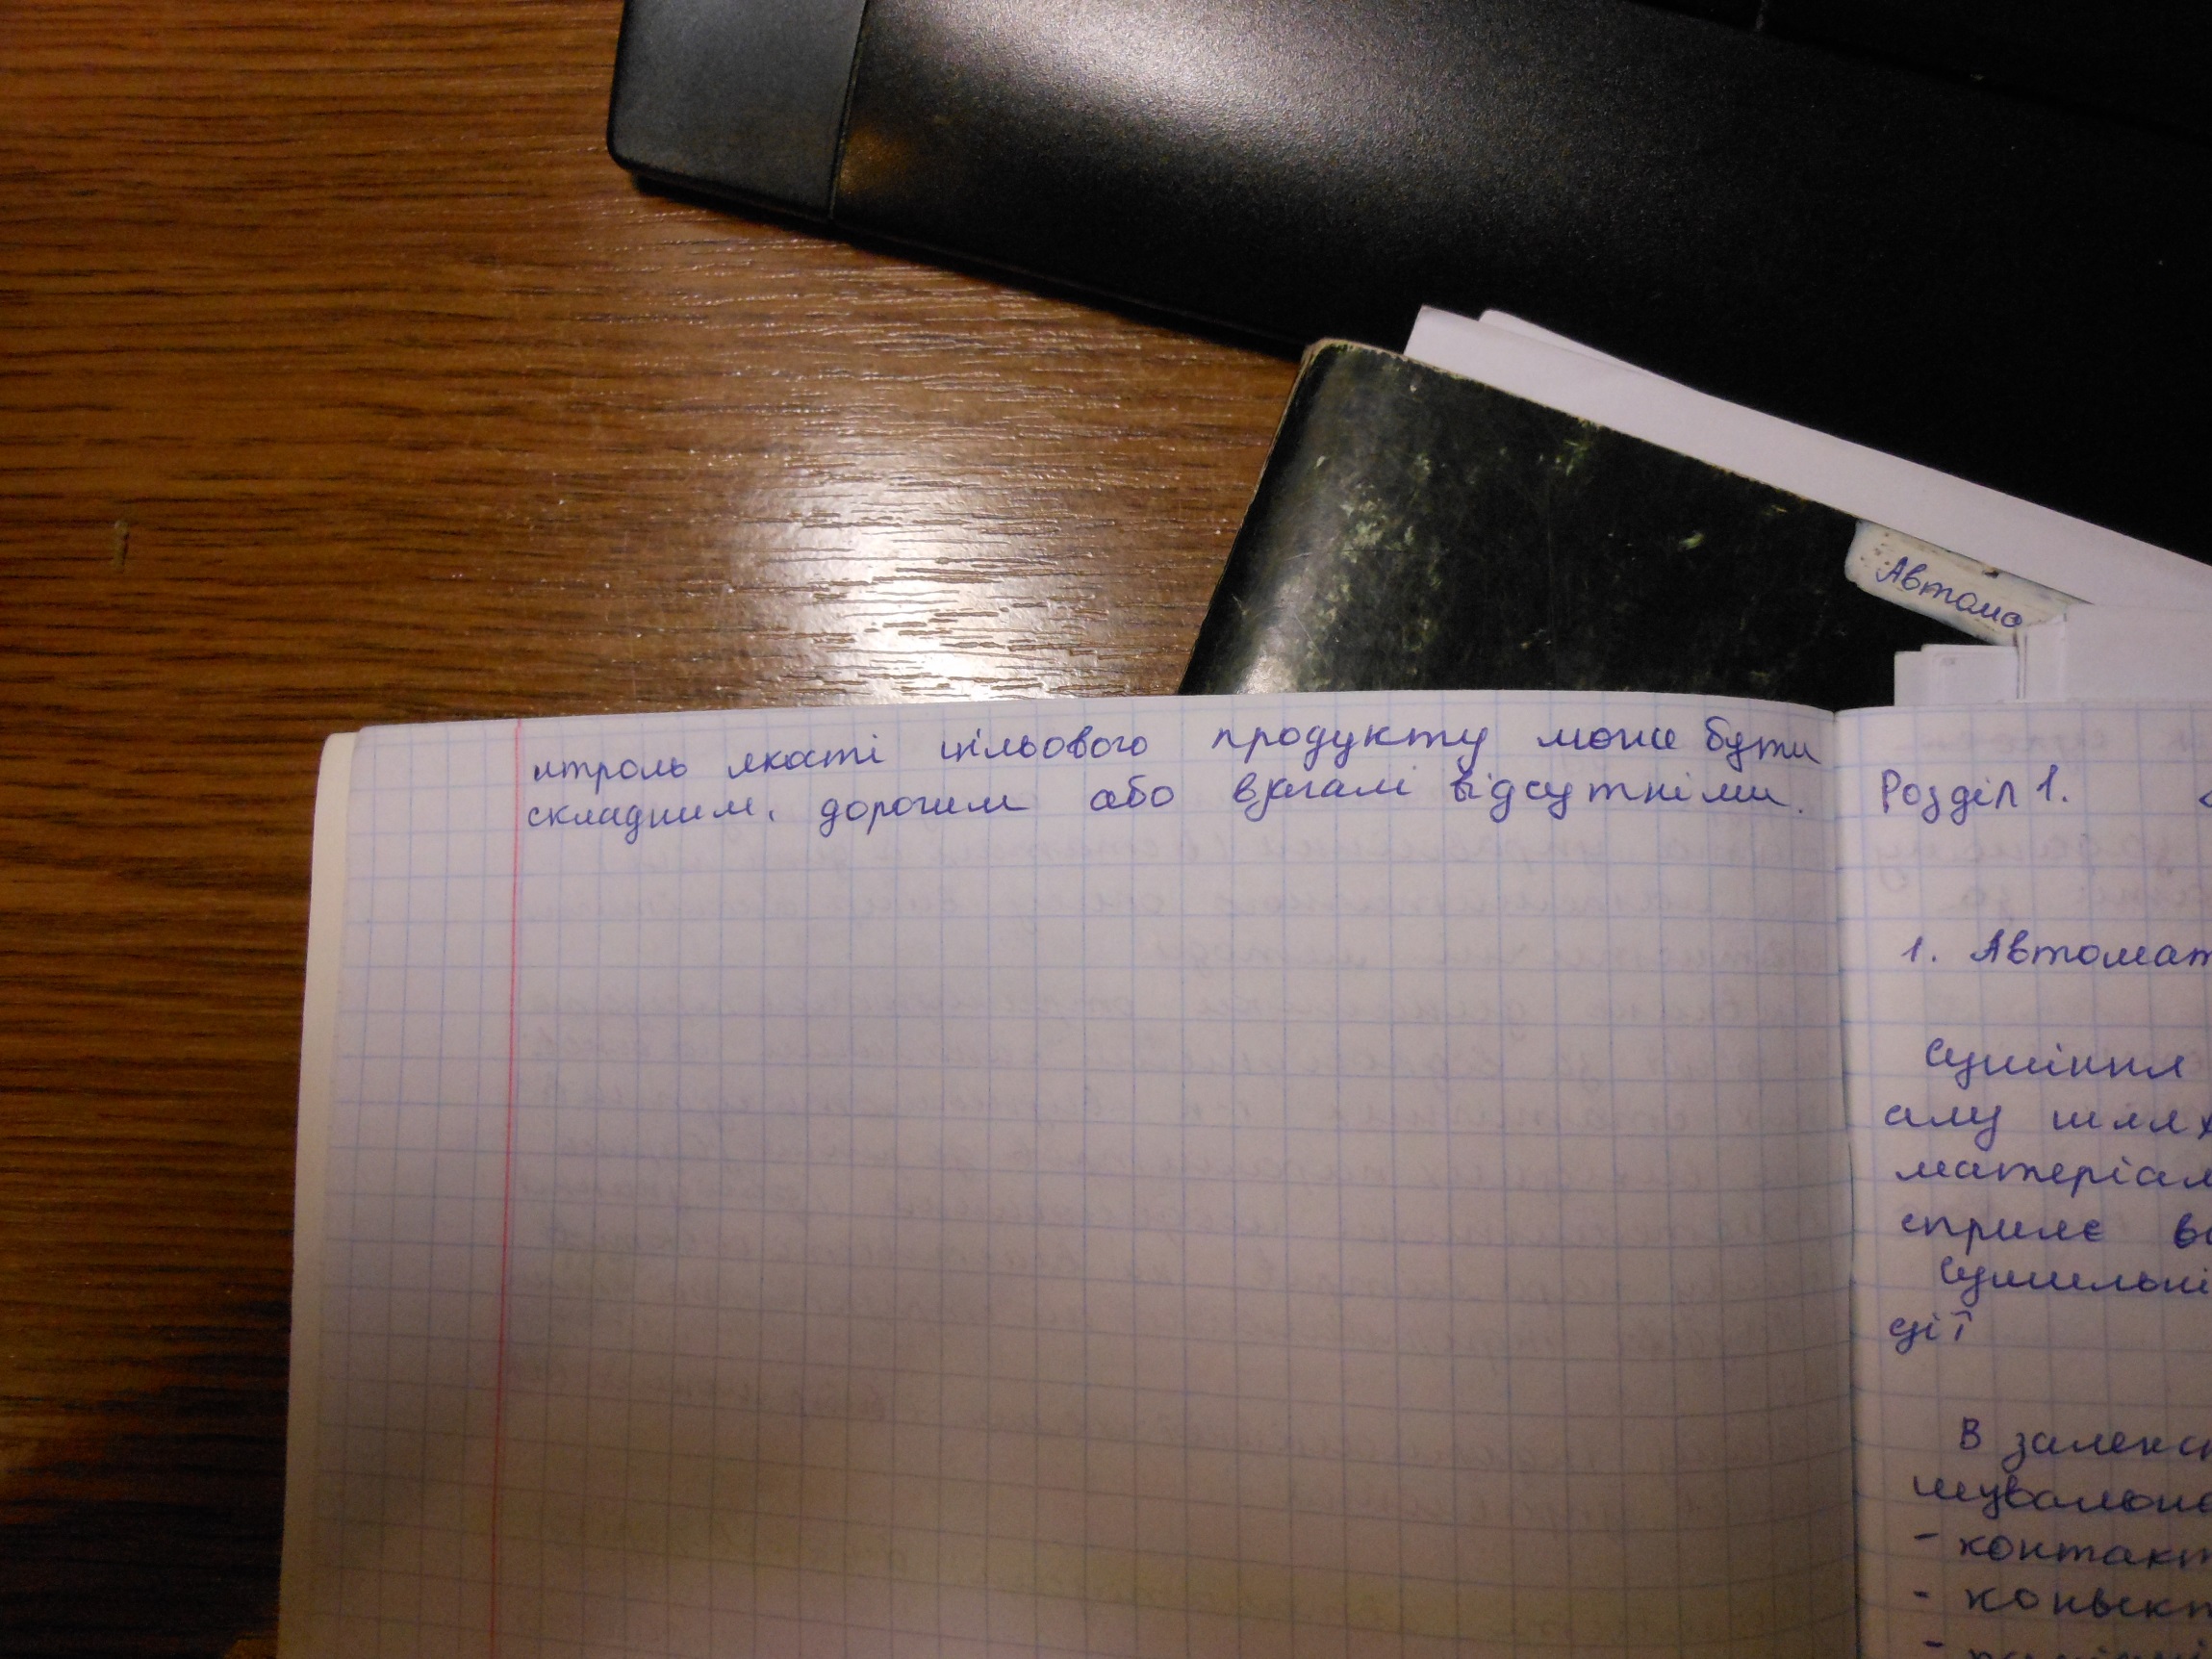 Автома
нтроль якості цільового продукту може бути
складним, дорогим або взагалі відсутніми.
Розділ 1.
1. Автомат
Сушіння
алу шлях
матеріал
сприяє
Сушильні
ції
В залежн
шувально
- контакт
- конвект